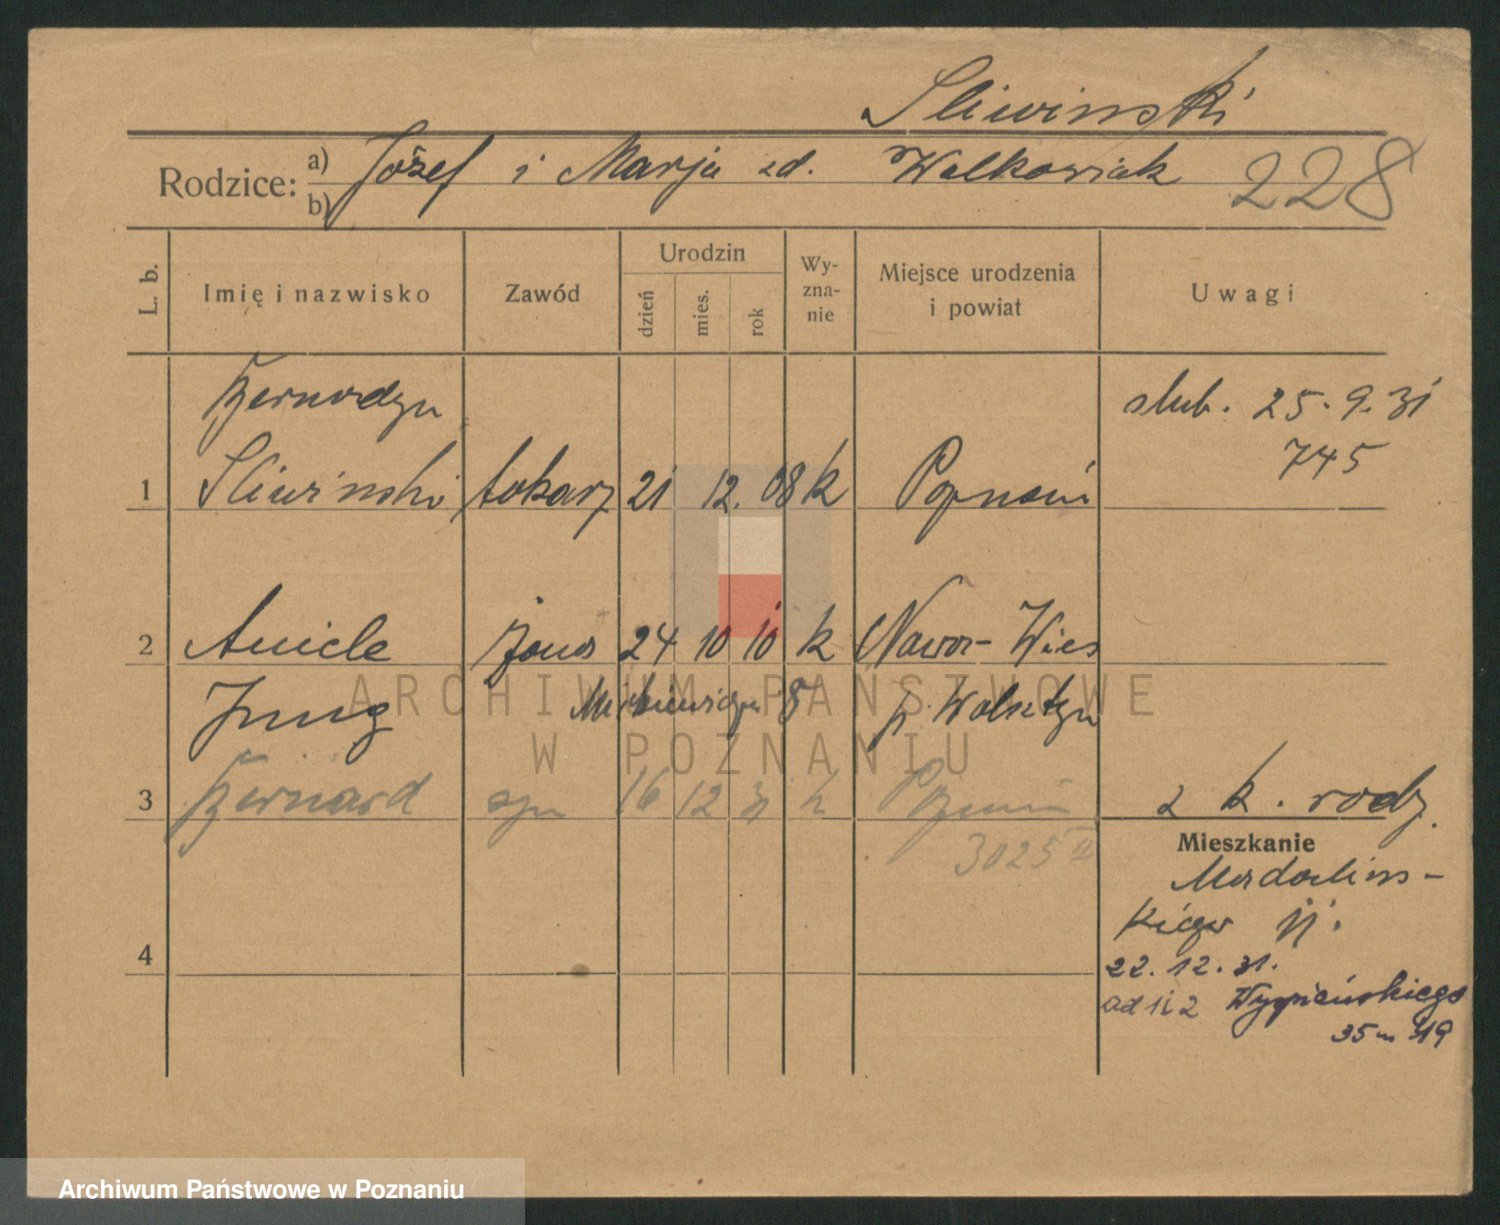 Sliwinski
Rodzice: a) Józef i Marja zd. Walkowiak 228
b)
L. b. Imię i nazwisko Zawód Urodzin dzień mies. rok Wy-zna-nie Miejsce urodzenia i powiat Uwagi
Bernardyn slub. 25.9.31
745
1 Sliwinski tokarz 21 12. 08 k Poznań
2 Aniela żona 24 10 10 k Nowa-Wies
Jung Mickiewicza 8 p. Wolsztyn
3 Bernard syn 16 12 31 k Poznań z k. rodz.
3025 II
Mieszkanie
Madalins-
kiego 11.
4
22.12.31.
ad 1i2 Wyspiańskiego
35 m 19
ARCHIWUM PAŃSTWOWE
W POZNANIU
Archiwum Państwowe w Poznaniu